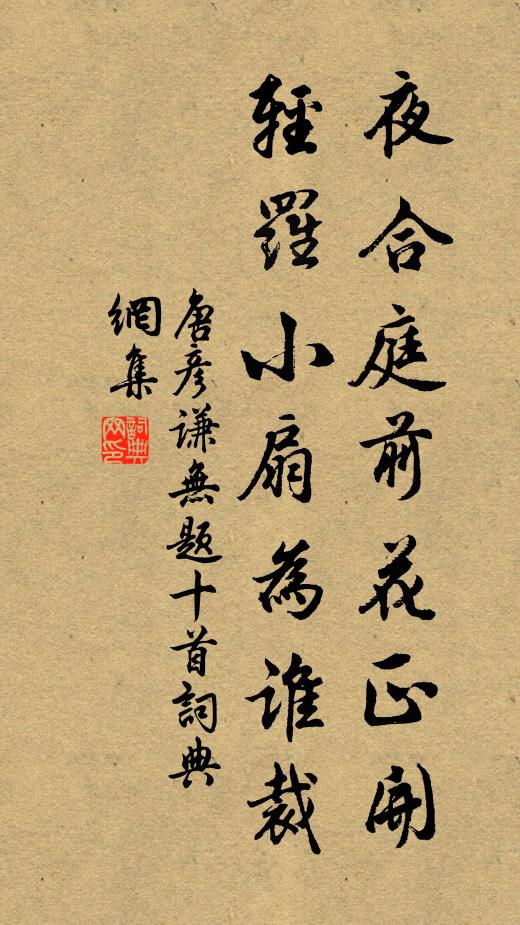 夜合庭前花正開
輕羅小扇為誰裁
唐彦謙無題十首詞典
網集
詞典
网印